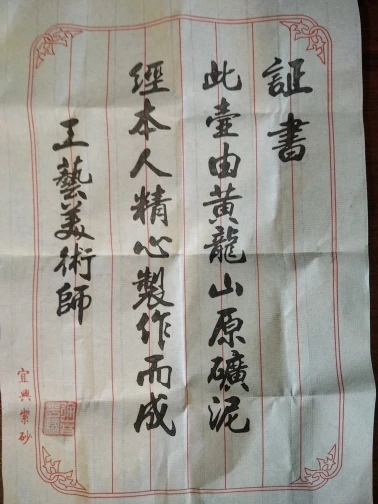 証書
此壺由黄龍山原礦泥
經本人精心製作而成
工藝美術師
宜興紫砂